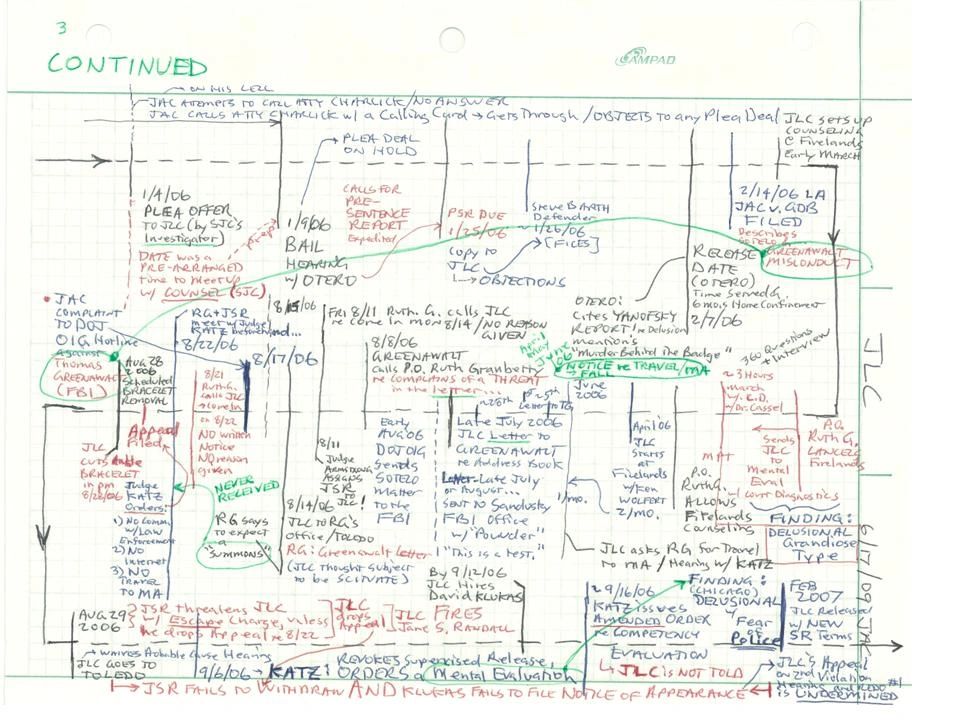 3
CONTINUED
AMPAD
ON HIS CELL
JAC ATTEMPTS TO CALL ATTY CHARLICK/NO ANSWER
JAC CALLS ATTY CHARLICK w/ a Calling Card → Gets Through/OBJECTS to any Plea Deal
JLC SETS UP
COUNSELING
@ Firelands
Early MARCH
PLEA DEAL
ON HOLD
1/4/06
PLEA OFFER
TO JLC (by SJC's
Investigator)
DATE was a
PRE-ARRANGED
time to MEET UP
w/ COUNSEL (SJC)
prep
1/9/06
BAIL
HEARING
w/ OTERO
CALLS FOR
PRE-
SENTENCE
REPORT
Expedited
PSR DUE
1/25/06
Copy to
JLC
→ OBJECTIONS
Steve BARTH
Defender
1/26/06
[FILES]
RELEASE
DATE
(OTERO)
Time Served &
6 mois Home Confinement
2/7/06
2/14/06 LA
JAC v. GDB
FILED
Describes
SOTERO &
GREENAWALT
MISCONDUCT
• JAC
COMPLAINT
TO DOJ
OIG Hotline
against
Thomas
GREENAWALT
(FBI)
AUG 28
2006
Scheduled
BRACELET
REMOVAL
RG + JSR
meet w/ Judge
KATZ beforehand...
8/22/06
8/15/06
8/17/06
FRI 8/11 Ruth. G. calls JLC
re come in mon 8/14/NO REASON
GIVEN
8/8/06
GREENAWALT
calls P.O. Ruth Granberry
re COMPLAINTS of a THREAT
in the letter...
OTERO:
Cites YANOFSKY
REPORT/re Delusion
mention's
"Murder Behind The Badge"
April
May
June
06
NOTICE re TRAVEL/MA
→ FALL
June
2006
360 Questions
re Interview
JLC
8/21
Ruth G.
calls JLC
→ come in
on 8/22
NO written
Notice
NO reason
given
Appeal
Filed
JLC
CUTS Ankle
BRACELET
in pm
8/28/06
Judge
KATZ
Orders:
1) No Comm.
w/Law
Enforcement
2) NO
Internet
3) NO
TRAVEL
TO MA
NEVER
RECEIVED
RG says
to expect
a
"SUMMONS"
8/11
Judge
ARMSTRONG
ASSIGNS
JSR
TO JLC!
8/14/06
JLC TO RG's
Office/TOLEDO
RG: Greenawalt Letter
(JLC thought subject
to be SCITUATE)
Early
Aug '06
DOJ OIG
Sends
SOTERO
Matter
to the
FBI
Late July 2006
JLC Letter to
GREENAWALT
re Address Book
Late July
or August...
SENT to Sandusky
FBI Office
w/ "Powder"
"This is a test."
1/mo.
April '06
JLC
Starts
at
Firelands
w/Ken
WOLFORT
2/mo.
~ 3 Hours
March
w/ R.D.
w/Dr. Cassel
MPT
Sends
JLC to
Mental
Eval
w/ Court Diagnostics
P.O.
Ruth G.
ALLOWS
Firelands
Counseling
P.O.
Ruth G.
CANCELS
Firelands
FINDING:
DELUSIONAL
Grandiose
Type
JLC asks RG for Travel
to MA/Hearing w/ KATZ
By 9/12/06
JLC Hires
David KLUKAS
AUG 29
2006
JSR threatens JLC
w/ Escape Charge, unless
he drops Appeal re 8/22
JLC
drops
Appeal
JLC FIRES
Jane S. RANDALL
→ waives Probable Cause Hearing
JLC GOES TO
TOLEDO
9/6/06 →
KATZ:
REVOKES Supervised Release,
ORDERS a Mental Evaluation
29/16/06
KATZ issues
AMENDED ORDER
re COMPETENCY
EVALUATION
↳ JLC is NOT TOLD
FINDING:
(CHICAGO)
DELUSIONAL
w/
Fear
of
Police
FEB
2007
JLC Released
w/ NEW
SR Terms
JLC's Appeal
on 2nd Violation
is UNDERMINED
JSR FAILS to WITHDRAW AND KLUKAS FAILS TO FILE NOTICE of APPEARANCE
6/17/09 JAC